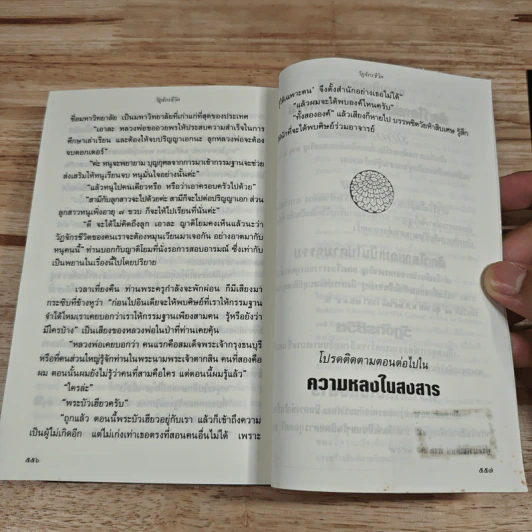 วัฏจักรชีวิต
ชื่อมหาวิทยาลัย เป็นมหาวิทยาลัยที่เก่าแก่ที่สุดของประเทศ
"เอาละ หลวงพ่อขออวยพรให้ประสบความสำเร็จในการ
ศึกษาเล่าเรียน และต้องให้จบปริญญาเอกนะ ลูกหลวงพ่อจะต้อง
จบดอกเตอร์"
"ค่ะ หนูจะพยายาม บุญกุศลจากการมาเข้ากรรมฐานจะช่วย
ส่งเสริมให้หนูเรียนจบ หนูมั่นใจอย่างนั้นค่ะ"
"แล้วหนูไปคนเดียวหรือ หรือว่าเอาครอบครัวไปด้วย"
"สามีกับลูกสาวจะไปด้วยค่ะ สามีก็จะไปต่อปริญญาเอก ส่วน
ลูกสาวหนูเพิ่งอายุ ๗ ขวบ ก็จะให้ไปเรียนที่นั่นค่ะ"
"ดี จะได้ไม่คิดถึงลูก เอาละ ญาติโยมคงเห็นแล้วนะว่า
วัฏจักรชีวิตของคนเราจะต้องหมุนเวียนมาเจอกัน อย่างอาตมากับ
หนูคนนี้" ท่านบอกกับญาติโยมที่นั่งรอการสอบอารมณ์ ซึ่งเท่ากับ
เป็นพยานในเรื่องนี้ไปโดยปริยาย
เวลาเที่ยงคืน ท่านพระครูกำลังจะพักผ่อน ก็มีเสียงมา
กระซิบที่ข้างหูว่า "ก่อนไปอินเดียจะให้พบศิษย์ที่เราให้กรรมฐาน
จำได้ไหมเราเคยบอกว่าเราให้กรรมฐานเพียงสามคน รู้หรือยังว่า
มีใครบ้าง" เป็นเสียงของหลวงพ่อในป่าที่ท่านเคยคุ้น
"หลวงพ่อเคยบอกว่า คนแรกคือสมเด็จพระเจ้ากรุงธนบุรี
หรือที่คนส่วนใหญ่รู้จักท่านในพระนามพระเจ้าตากสิน คนที่สองคือ
ผม ตอนนั้นผมยังไม่รู้ว่าคนที่สามคือใคร แต่ตอนนี้ผมรู้แล้ว"
"ใครล่ะ"
"พระบัวเฮียวครับ"
"ถูกแล้ว ตอนนี้พระบัวเฮียวอยู่กับเรา แล้วก็เข้าถึงความ
เป็นผู้ไม่เกิดอีก แต่ไม่เก่งเท่าเธอตรงที่สอนคนอื่นไม่ได้ เพราะ
๕๕๖
วัฏจักรชีวิต
รู้เฉพาะตน' จึงตั้งสำนักอย่างเธอไม่ได้"
"แล้วผมจะได้พบองค์ไหนครับ"
"ทั้งสององค์" แล้วเสียงก็หายไป บรรพชิตวัยห้าสิบเศษ รู้สึก
ที่จะได้พบศิษย์ร่วมอาจารย์
โปรดติดตามตอนต่อไปใน
ความหลงในสงสาร
๕๕๗